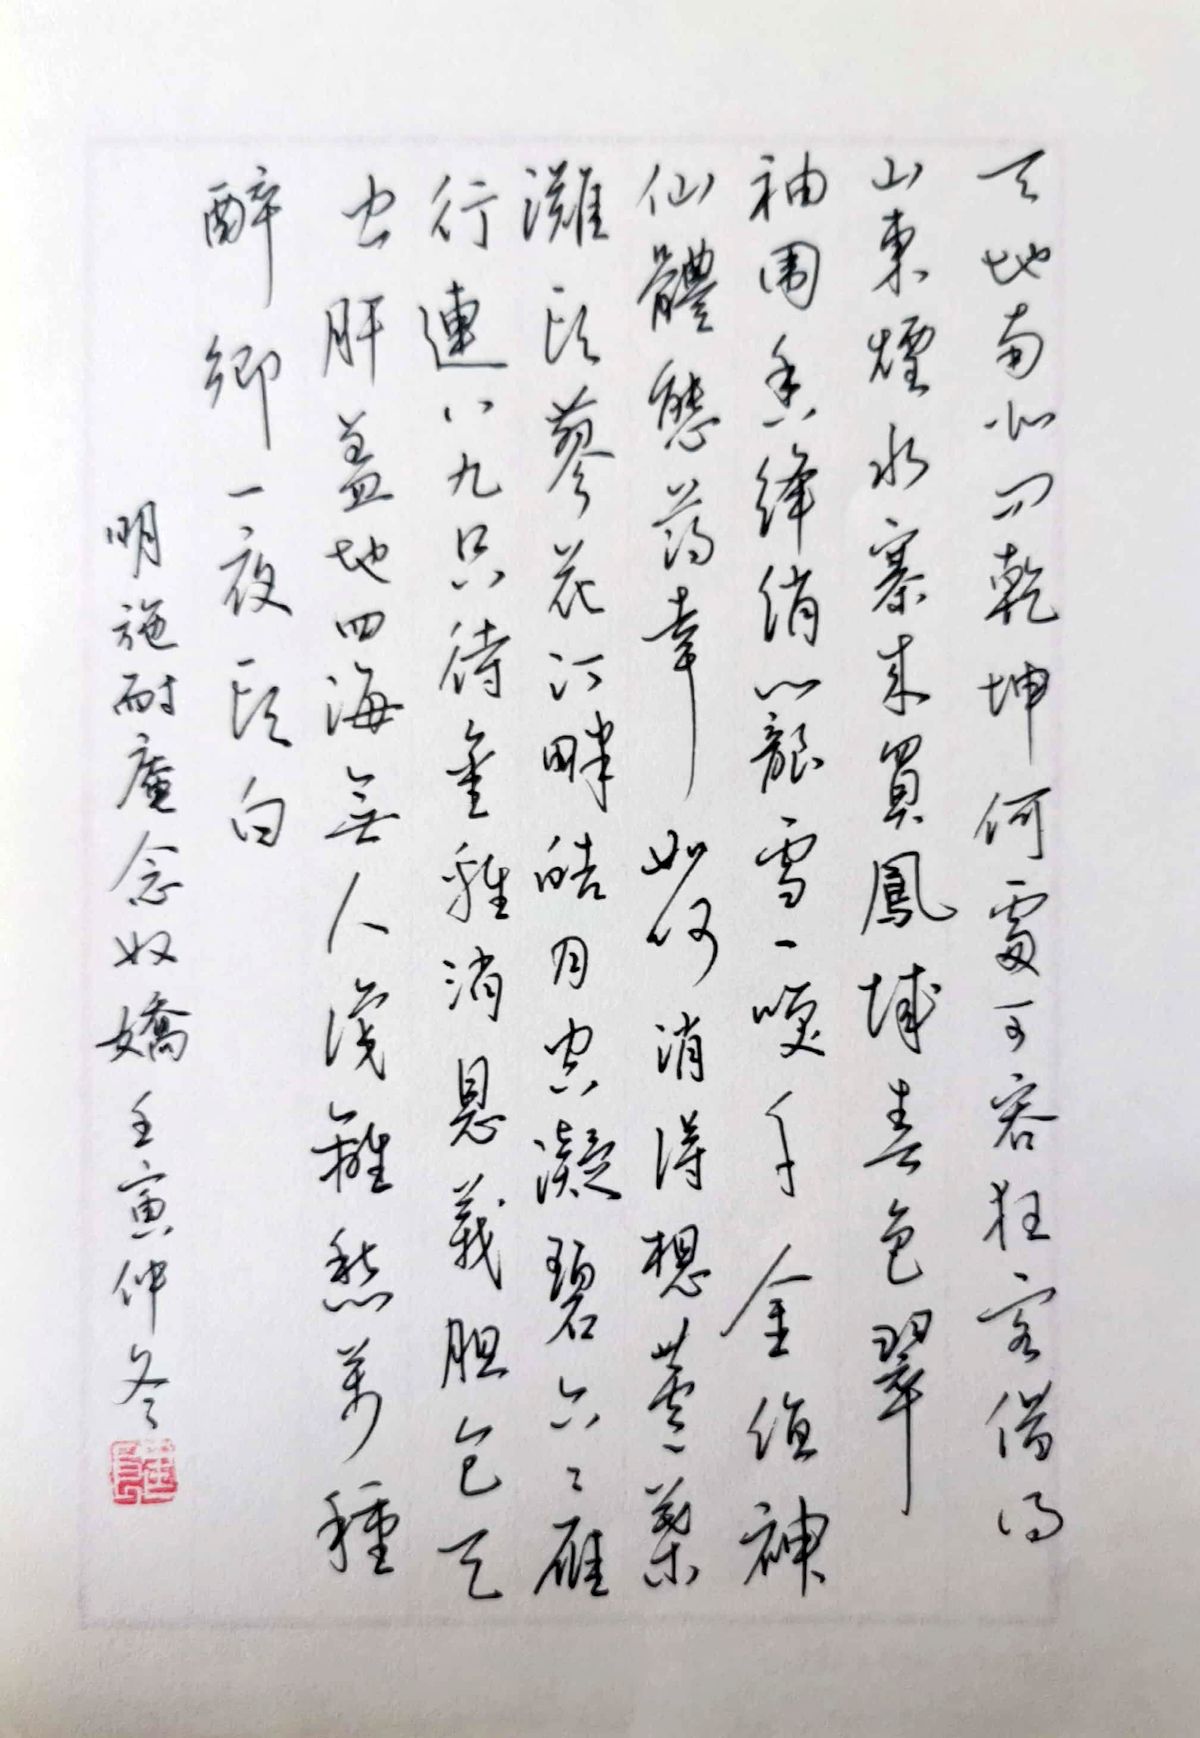 天地南北問乾坤何處可容狂客借得
山東煙水寨來買鳳城春色翠
袖圍香絳綃籠雪一笑千金值神
仙體態薄幸如何消得想蘆葉
灘頭蓼花汀畔皓月空凝碧六六雁
行連八九只待金雞消息義胆包天
忠肝蓋地四海無人識離愁萬種
醉鄉一夜頭白
明施耐庵念奴嬌壬寅仲冬